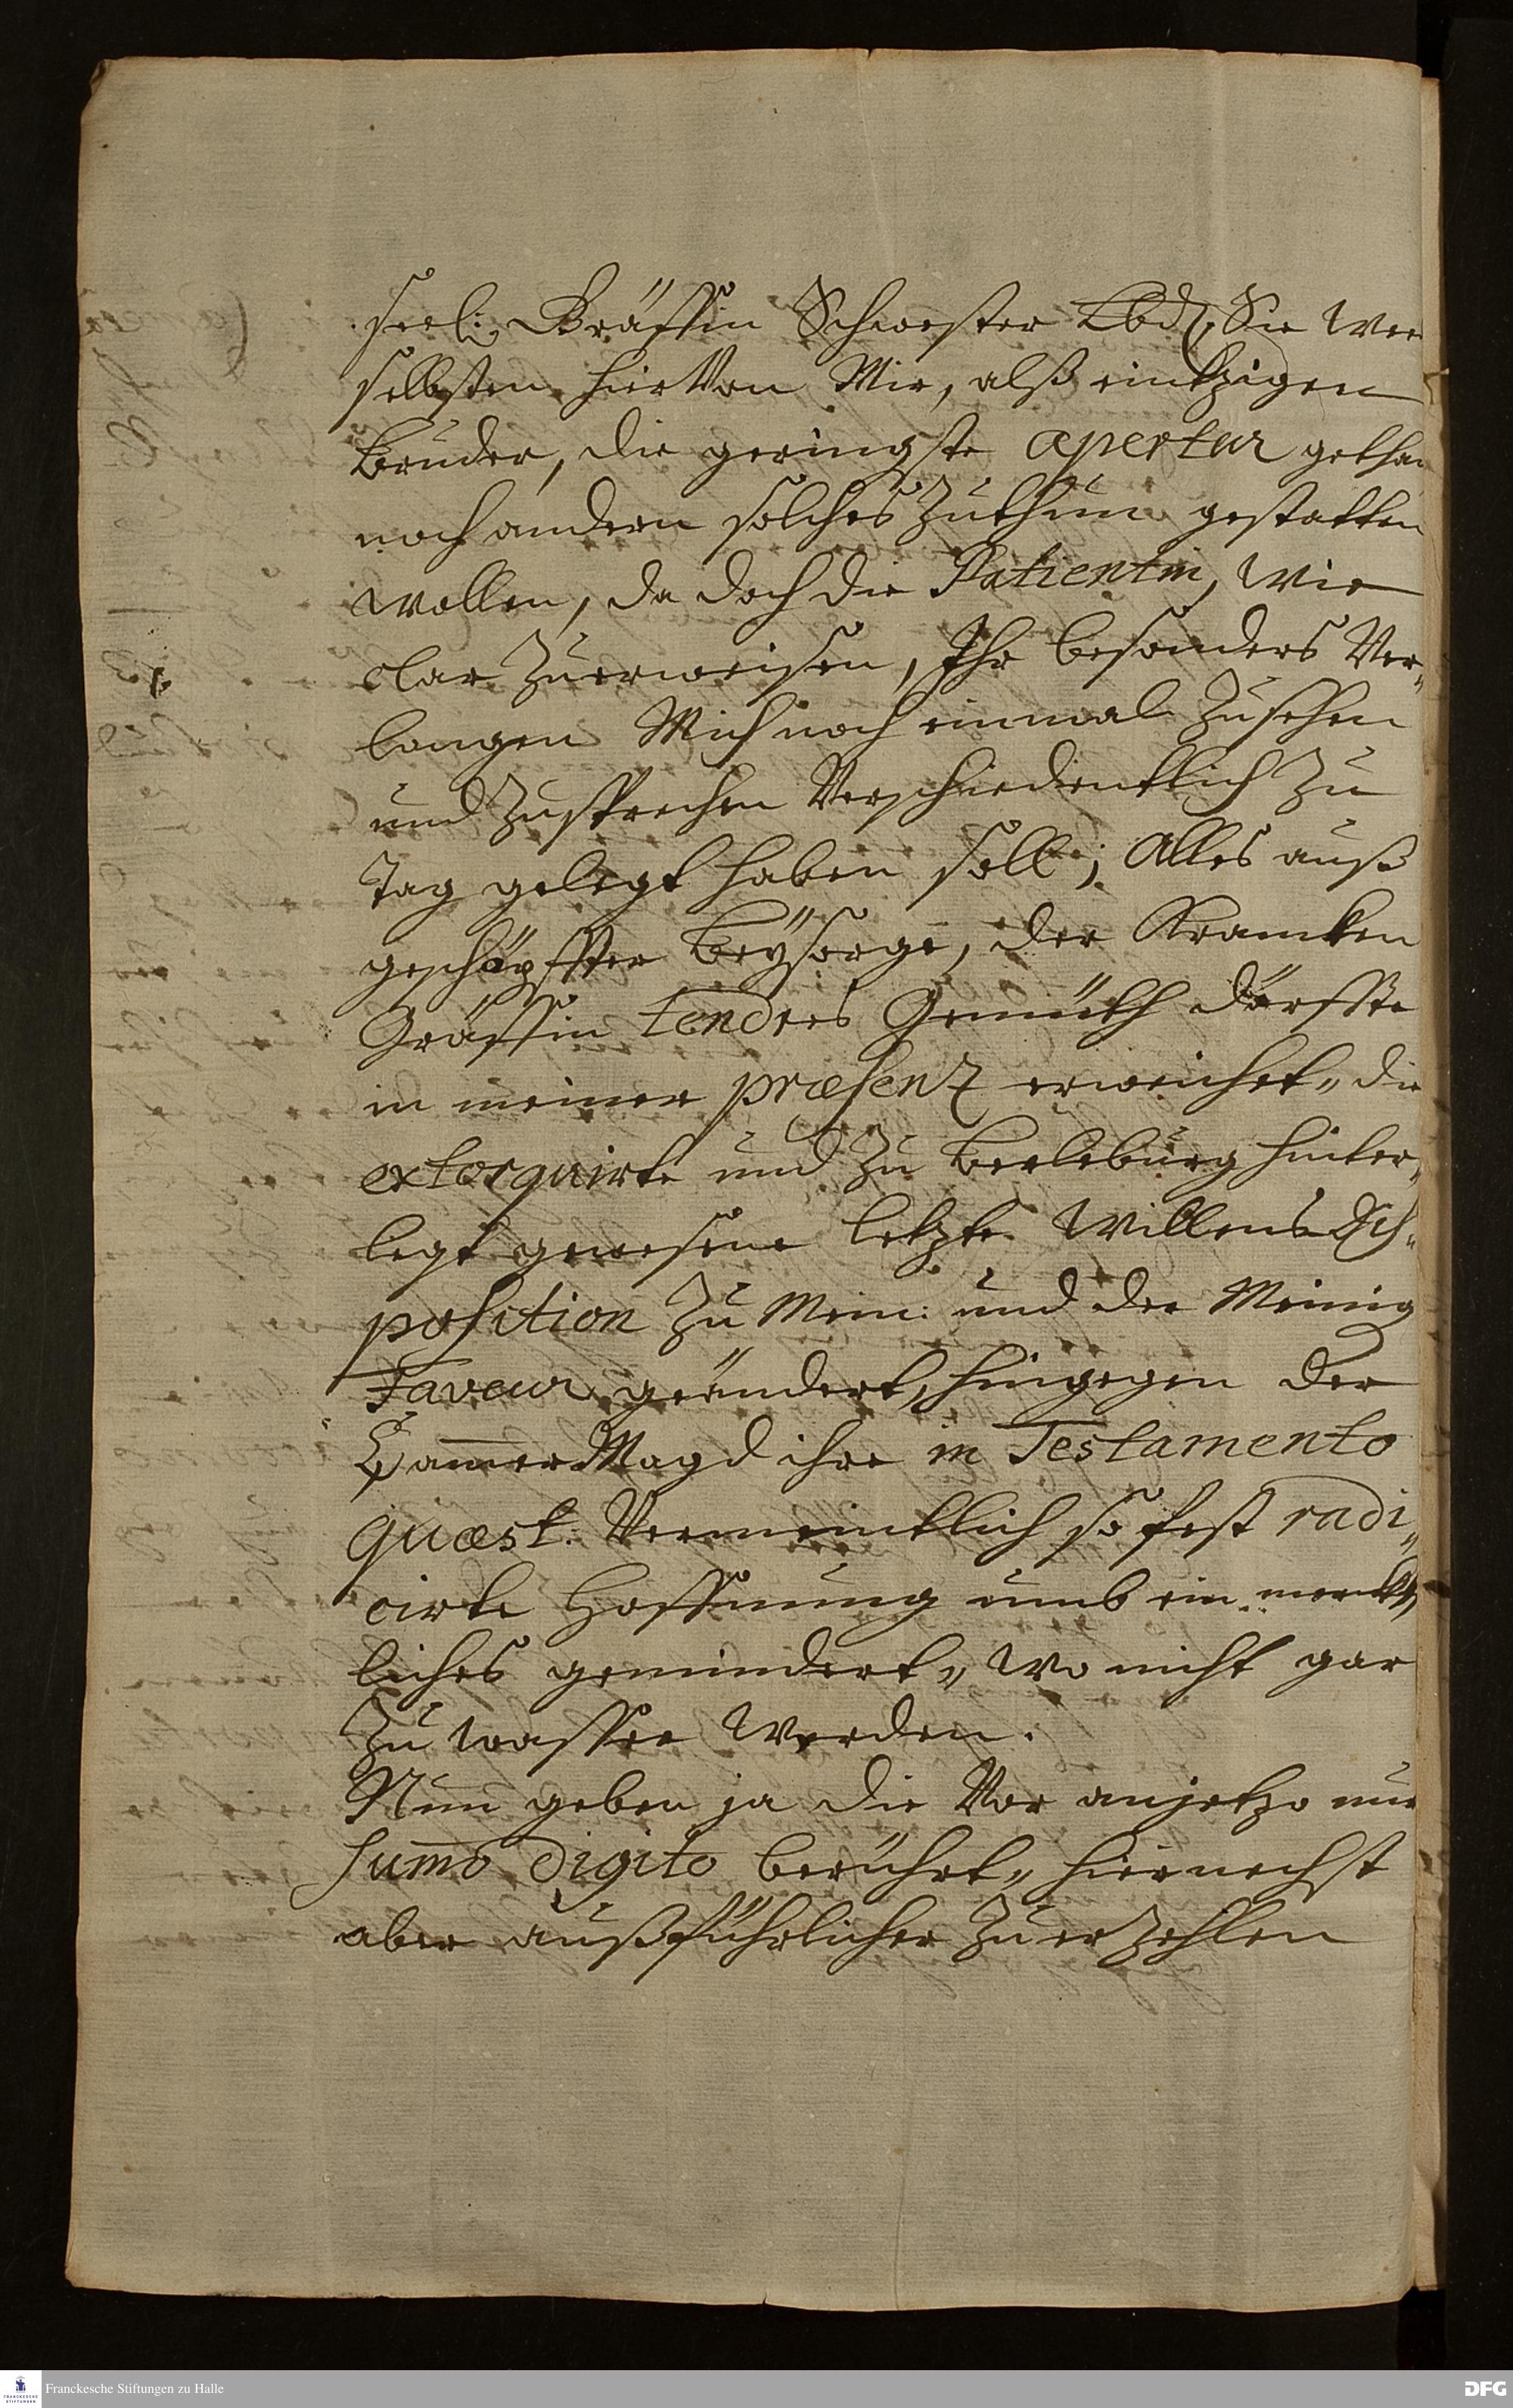 seel: Gräffin Schwester Lbd. Sie we
selbsten hiervon Mir, alß eintzigen
Bruder, die geringste apertur gethan
noch andern solches zuthun gestatten
wollen, da doch die Patientin, wie
clar zuerweisen, Ihr besonders Ver„
langen Mich noch einmal zusehen
und zusprechen verschiedentlich zu
Tag gelegt haben soll; Alles auß
geschöpffter beysorge, der Krancken
Gräffin tendres Gemüth dörffte
in meiner præsenz erweichet„ die
extorquirte und zu Berleburg hinter„
legt gewesene letzte Willens Dis„
position zu Mein: und der Meinig
Faveur geändert, hingegen der
Cammer Magd ihre in Testamento
quæst: vermeintlich so fest radi„
cirte Hoffnung umb ein merck„
liches gemindert„ wo nicht gar
zu wasser werden.
Nun geben ja die vor anjetzo nur
summo digito berührt„ hiernechst
aber außführlicher zu erzehlen
Franckesche Stiftungen zu Halle
DFG